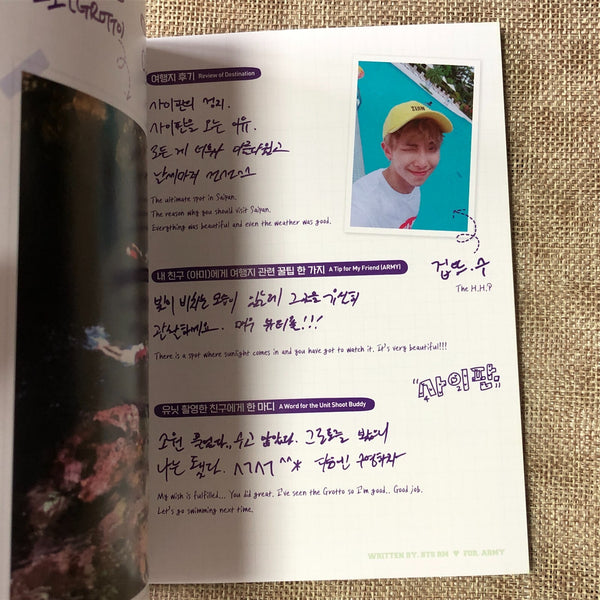 (GROTTO)
여행지 후기 Review of Destination
사이판의 정리.
사이판을 오는 이유.
모든 게 너무나 아름다웠고
날씨마저 선선스
The ultimate spot in Saipan.
The reason why you should visit Saipan.
Everything was beautiful and even the weather was good.
겁쁘.주
The H.H.P
내 친구 (아미)에게 여행지 관련 꿀팁 한 가지 A Tip for My Friend (ARMY)
빛이 비치는 모습이 있는데 그곳을 유심히
관찰하세요.. 매우 뷰티풀!!!
There is a spot where sunlight comes in and you have got to watch it. It's very beautiful!!!
"사이판"
유닛 촬영한 친구에게 한 마디 A Word for the Unit Shoot Buddy
소원 풀었다.. 수고 많았다. 그로토를 봤으니
나는 됐다. ^^* 다음엔 수영하자
My wish is fulfilled... You did great. I've seen the Grotto so I'm good.. Good job.
Let's go swimming next time.
WRITTEN BY. BTS RM ♥ FOR. ARMY